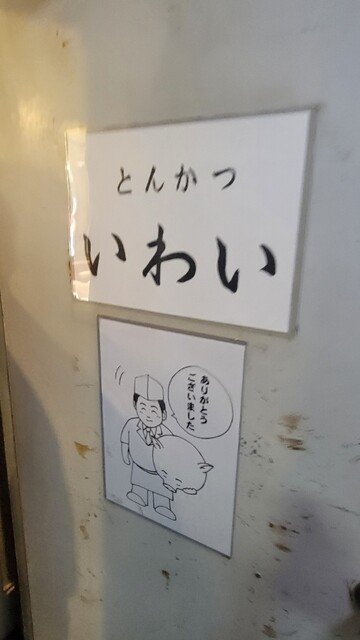 とんかつ
いわい
ありがとう
ございました